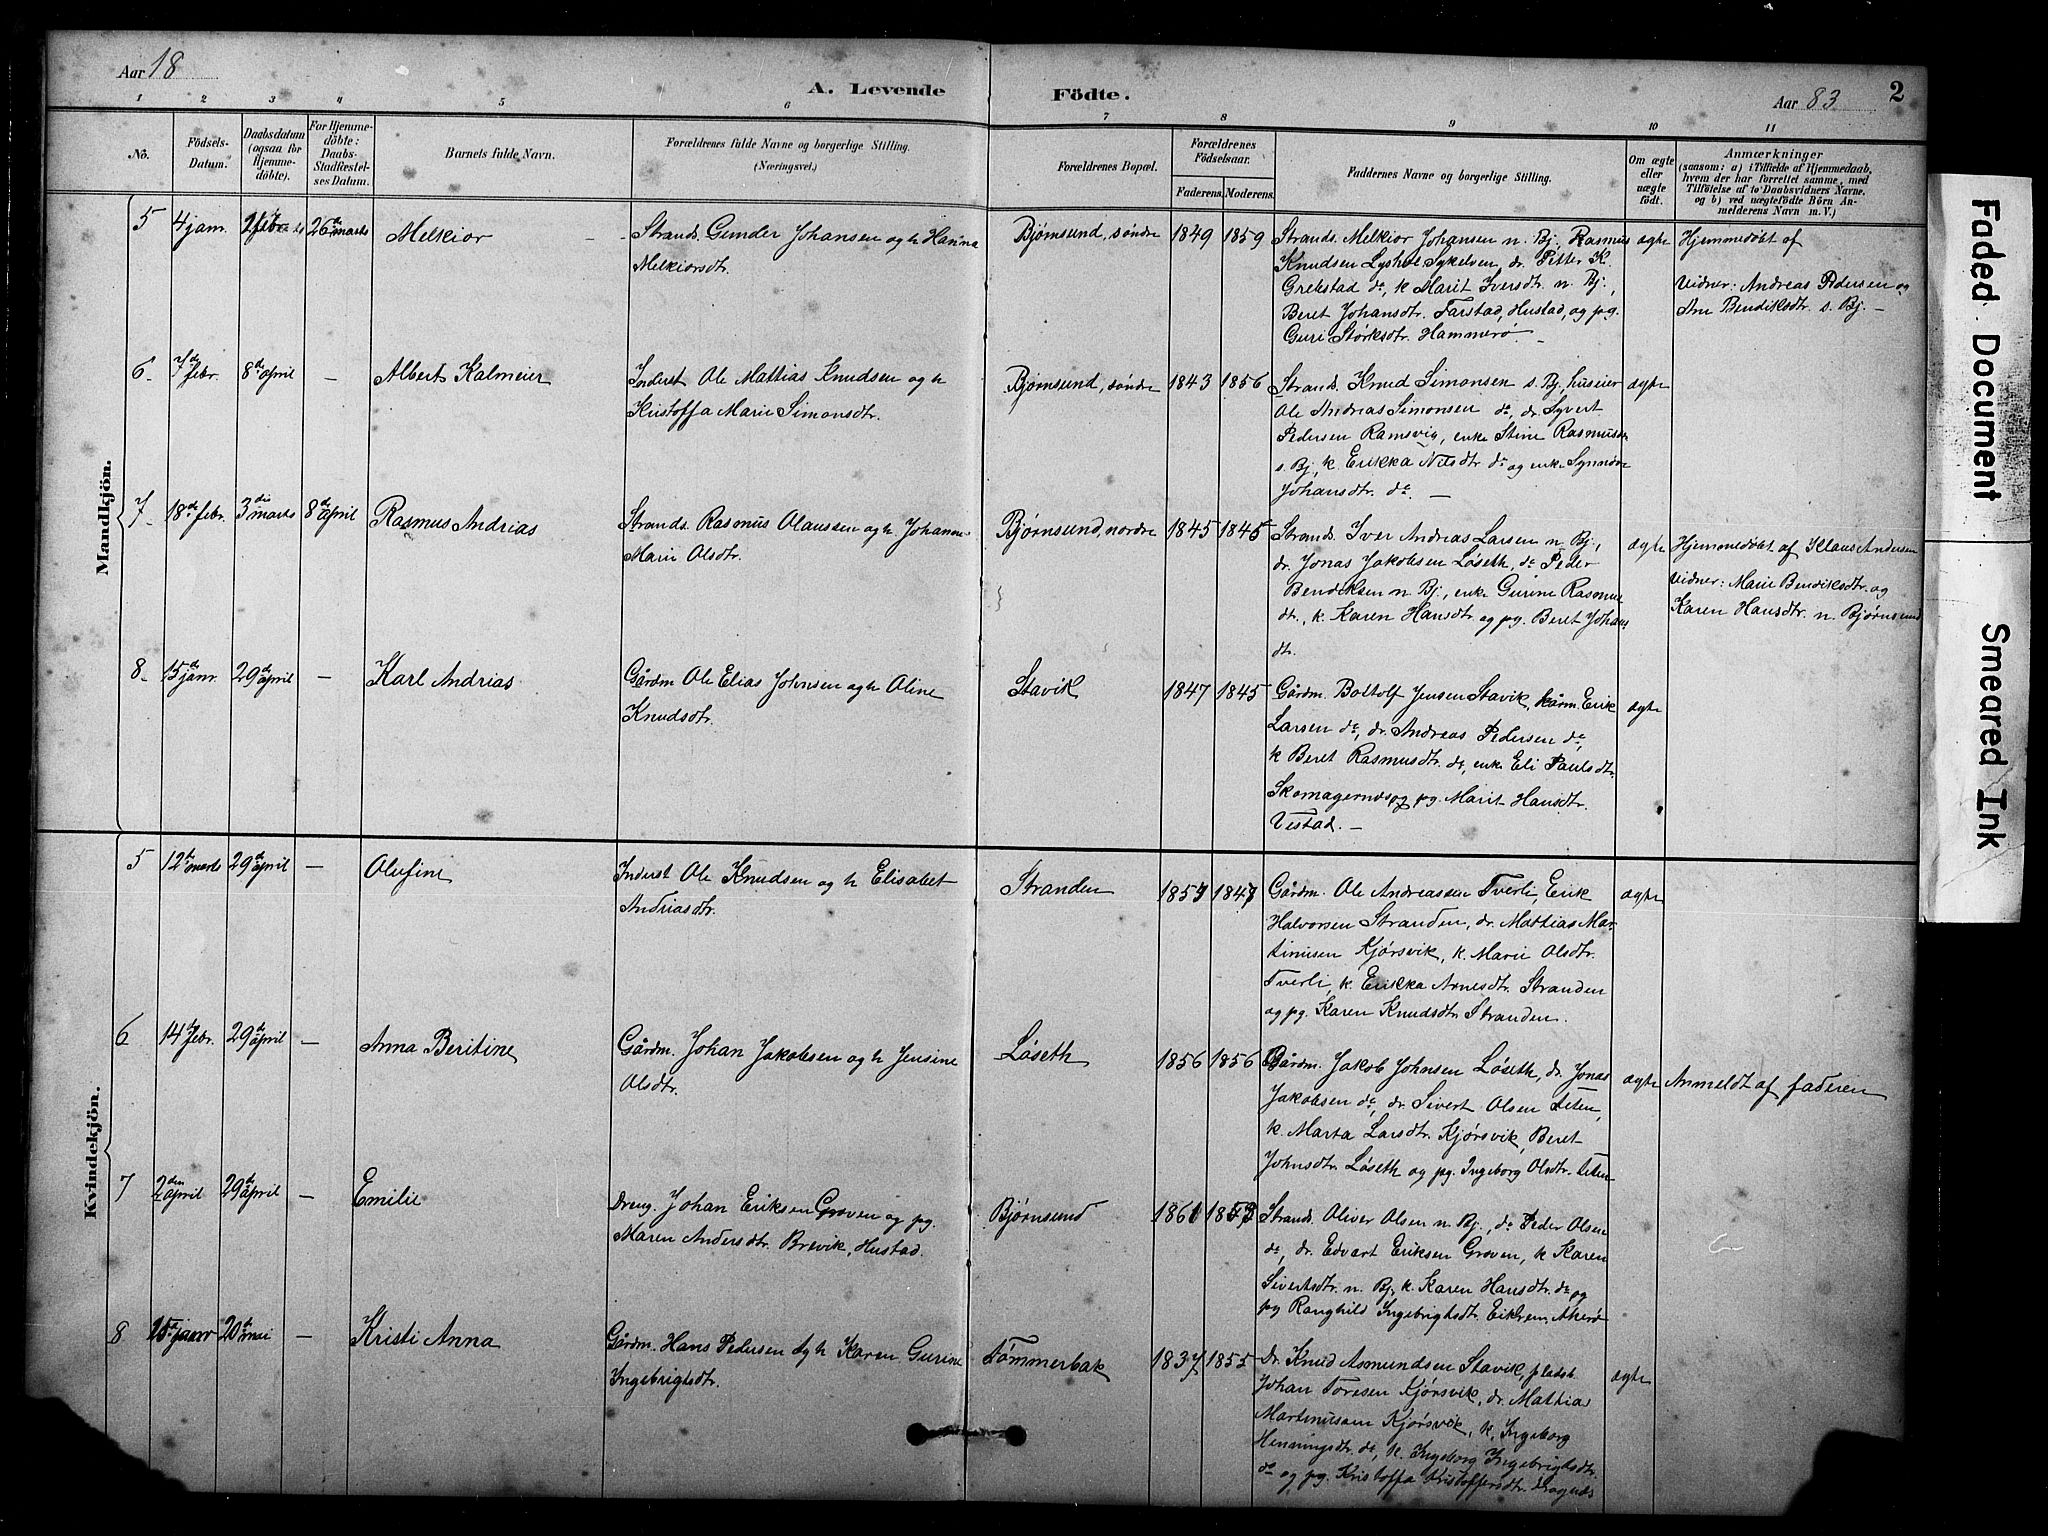 Aar 18
A. Levende
Födte.
Aar 83
2
1 2 3 4 5 6 7 8 9 10 11
No.
Födsels-
Datum.
Daabsdatum
(ogsaa for
Hjemme-
döbte).
For Hjemme-
döbte:
Daabs-
Stadfæstel-
ses Datum.
Barnets fulde Navn.
Forældrenes fulde Navne og borgerlige Stilling.
(Næringsvei.)
Forældrenes Bopæl.
Forældrenes
Födselsaar.
Faderens. Moderens.
Faddernes Navne og borgerlige Stilling.
Om ægte
eller
uægte
født.
Anmærkninger
(saasom: a) i Tilfælde af Hjemmedaab,
hvem der har forrettet samme, med
Tilföielse af to Daabsvidners Navne,
og b) ved uægtefödte Börn An-
melderens Navn m. V.)
Mandkjön.
5
4 jan.
26 marts
Melkior
Strands. Gunder Johansen og h Hanna
Melkiorsdtr.
Bjørnsund, søndre
1849
1859
Strands. Melkior Johansen n. Bj., Rasmus
Knudsen Lyshol Sykelven, dr. Petter K.
Grebstad do, k Marit Iversdtr. n. Bj.,
Beret Johansdtr. Farstad, Hustad, og pg.
Guri Størksdtr. Hammerø. –
ægte
Hjemmedøbt af
Vidner: Andreas Pedersen og
Ane Bendiksdtr. s. Bj. –
6
7de febr.
8de april
–
Albert Kalmeier
Inderst Ole Mattias Knudsen og h
Kristoffa Marie Simonsdtr.
Bjørnsund, søndre
1843
1856
Strands. Knud Simonsen s. Bj. huseier
Ole Andreas Simonsen do, dr. Syvert
Pedersen Ramsvig, enke Stine Rasmusd.
s. Bj., k. Erikka Nilsdtr. do og enke Synnøve
Johansdtr. do. –
ægte
7
18de febr.
3die marts
8de april
Rasmus Andrias
Strands. Rasmus Olaussen og h. Johanne
Marie Olsdtr.
Bjørnsund, nordre
1845
1845
Strands. Iver Andrias Larsen n. Bj.,
dr. Jonas Jakobsen Løseth, do Peder
Bendiksen n Bj., enke Gurine Rasmus
dtr., k. Karen Hansdtr og pg. Beret Johans
dtr.
ægte
Hjemmedøbt af Klaus Andersen
Vidner: Marie Bendiksdtr. og
Karen Hansdtr. n. Bjørnsund
8
15de janr.
29de april
–
Karl Andrias
Gårdm Ole Elias Johnsen og h Oline
Knudsdtr.
Stavik
1847
1845
Gårdm. Bottolf Jensen Stavik, kårm. Erik
Larsen do, dr. Andreas Pedersen do,
k Beret Rasmusdtr. do, enke Eli Paulsdtr.
Skomagernæs og pg. Marit Hansdtr.
Vestad. –
ægte
Kvindekjön.
5
12te marts
29de april
–
Olufine
Inderst Ole Knudsen og h Elisabet
Andriasdtr.
Stranden
1857
1847
Gårdm. Ole Andreassen Tverli, Erik
Halvorsen Stranden, dr. Mattias Mar-
tinusen Kjørsvik, k. Marie Olsdtr.
Tverli, k. Erikka Arnesdtr. Stranden
og pg. Karen Knudsdtr Stranden.
ægte
6
14de febr.
29de april
–
Anna Beritine
Gårdm. Johan Jakobsen og h Jensine
Olsdtr.
Løseth
1856
1856
Gårdm. Jakob Johnsen Løseth, dr. Jonas
Jakobsen do, dr. Sivert Olsen Teten,
k. Marta Larsdtr. Kjørsvik, Beret
Johnsdtr. Løseth og pg. Ingeborg Olsdtr. Teten
ægte
Anmeldt af faderen
7
2den april
29de april
–
Emilie
Dreng. Johan Eriksen Groven og pg.
Maren Andersdtr. Brevik, Hustad.
Bjørnsund
1861
1853
Strands. Oliver Olsen n. Bj., do Peder Olsen
do, dr. Edvart Eriksen Groven, k Karen
Sivertsdtr. n. Bj, k. Karen Hansdtr. do og
pg Ranghild Ingebrigtsdtr. Eikrem, Akerø
8
15de janr
20de mai
–
Kristi Anna
Gårdm. Hans Pedersen og h Karen Gurine
Ingebrigtsdtr.
Tømmerbak
1837
1855
Dr. Knud Asmundsen Stavik, pladsb.
Johan Toresen Kjørsvik, dr. Mattias
Martinusen Kjørsvik, k. Ingeborg
Henningsdtr. do, k. Ingeborg Ingebrigtsdtr.
do og pg. Kristoffa Kristoffersdtr.
ægte
Faded Document
Smeared Ink